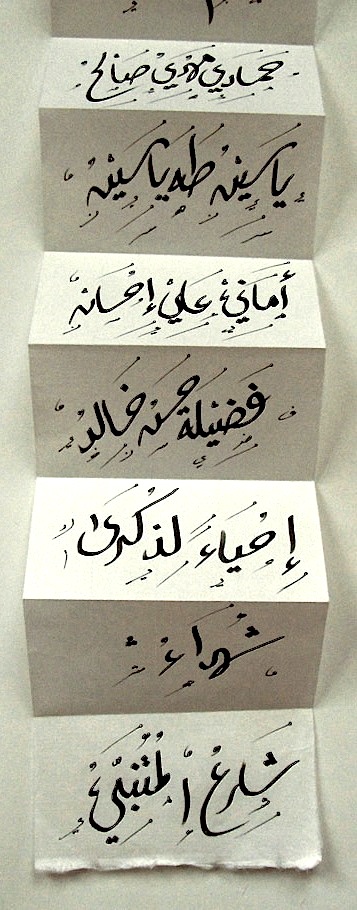 حمادي مهدي صالح
ياسين طه ياسين
أماني علي إحسان
فضيلة حسن خالد
إحياء لذكرى
شهداء
شارع المتنبي